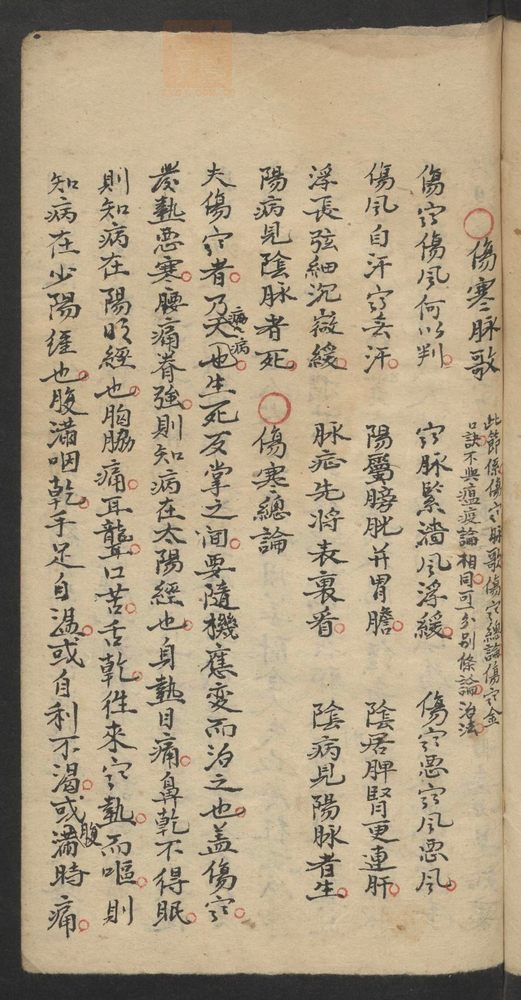 傷寒脉歌
此節係傷寒脉歌傷寒總論傷寒金
口訣不與瘟疫論相同可分别條論治法
傷寒傷風何以判 寒脉緊濇風浮緩 傷寒惡寒風惡風
傷風自汗寒無汗 陽屬膀胱并胃膽 陰居脾腎更連肝
浮長弦細沉微緩 脉症先將表裏看 陰病見陽脉者生
陽病見陰脉者死 傷寒總論
夫傷寒者乃大病也病生死反掌之間要隨機應变而治之也盖傷寒
發熱惡寒腰痛脊強則知病在太陽經也身熱目痛鼻乾不得眠
則知病在陽明經也胸脇痛耳聾口苦舌乾往來寒熱而嘔則
知病在少陽經也腹滿咽乾手足自温或自利不渴或腹滿時痛